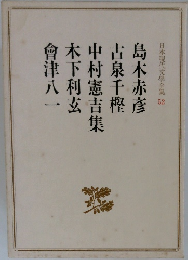 日本現代文學全集 52
島木赤彥
古泉千樫
中村憲吉集
木下利玄
會津八一